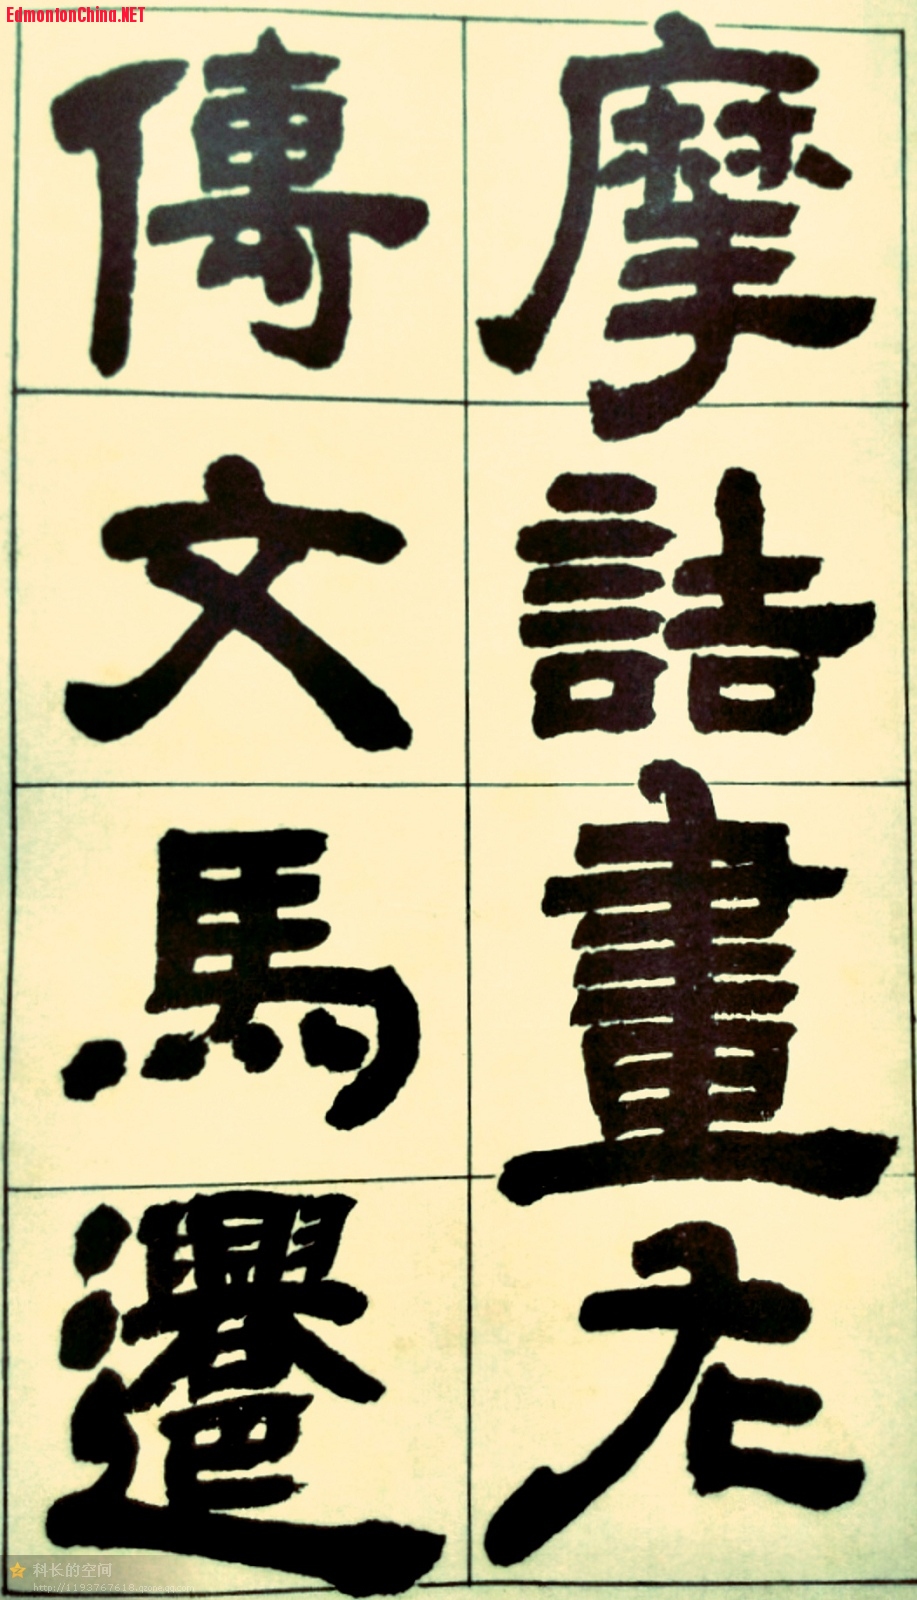 EdmontonChina.NET
摩詰畫左
傳文馬遷
科长的空间
http://1193767618.qzone.qq.com